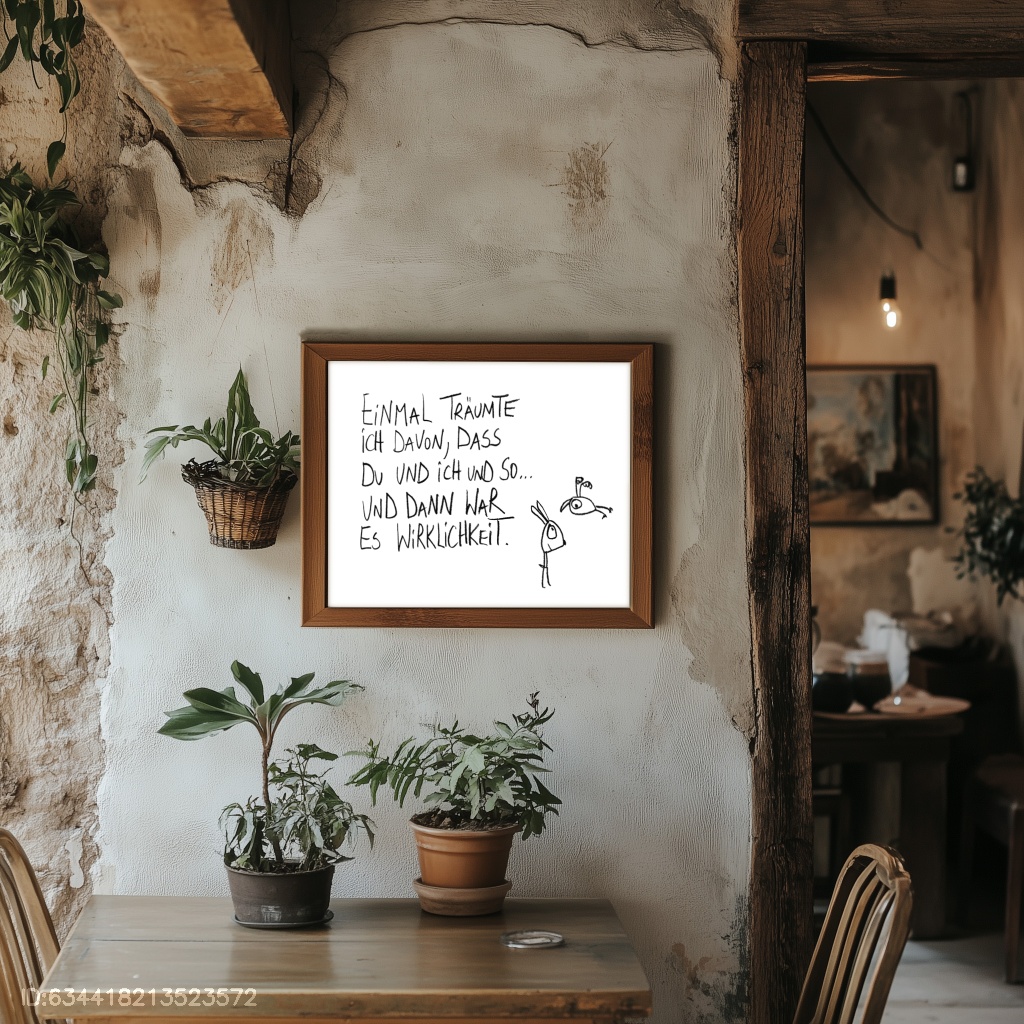 EiNMAL TRÄUMTE
iCH DAVON, DASS
DU UND iCH UND SO...
UND DANN WAR
ES WiRKLiCHKEiT.
ID:634418213523572